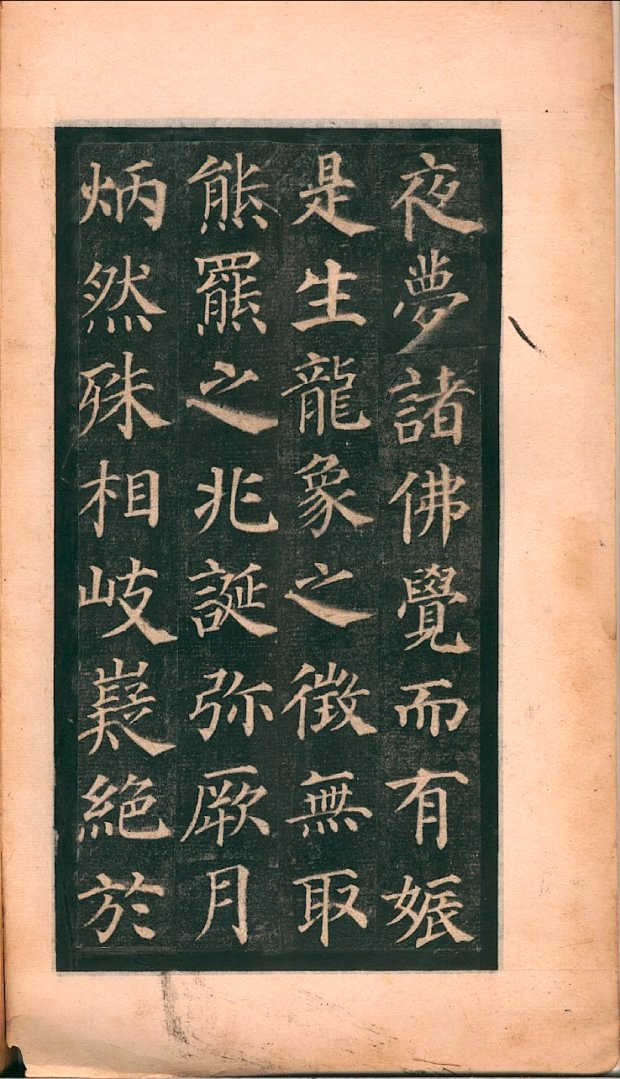 夜夢諸佛覺而有娠
是生龍象之徵無取
熊羆之兆誕弥厥月
炳然殊相岐嶷絕於